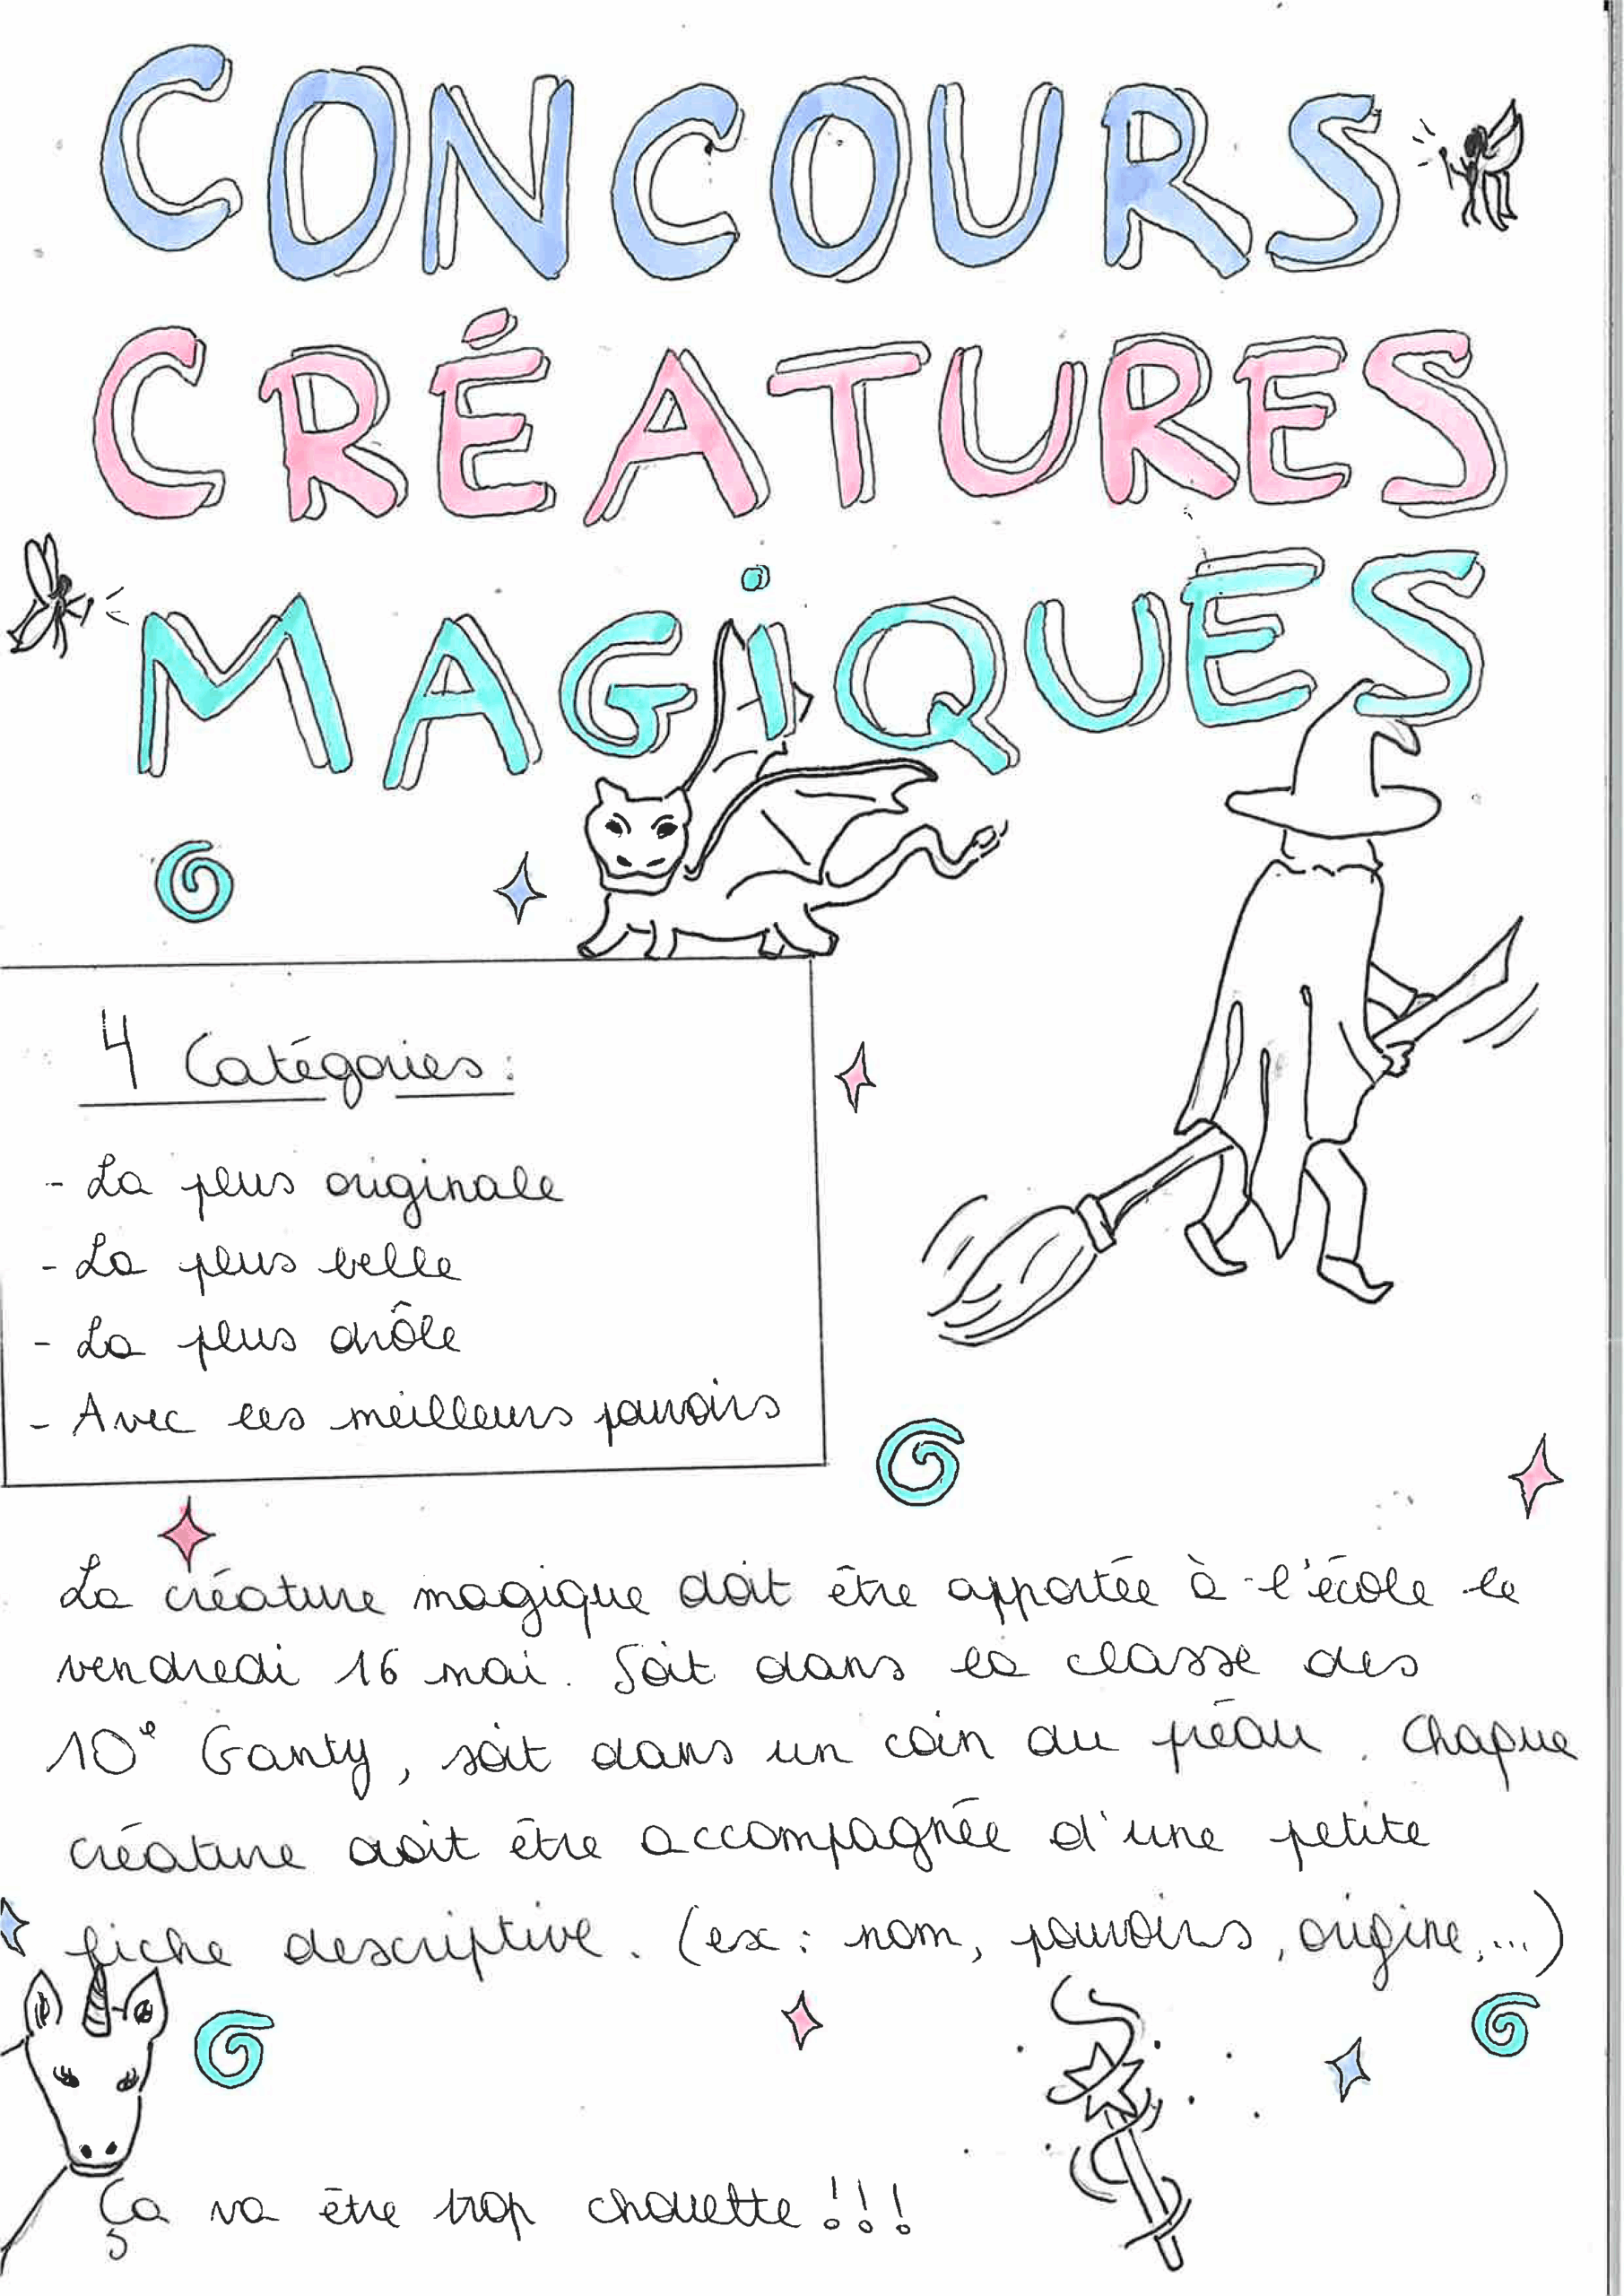 CONCOURS
CRÉATURES
MAGiQUES
4 Catégories :
- La plus originale
- La plus belle
- La plus drôle
- Avec les meilleurs pouvoirs
La créature magique doit être apportée à l'école le
vendredi 16 mai. Soit dans la classe des
10e Ganty, soit dans un coin du préau. Chaque
créature doit être accompagnée d'une petite
fiche descriptive. (ex : nom, pouvoirs, origine,...)
Ça va être trop chouette !!!